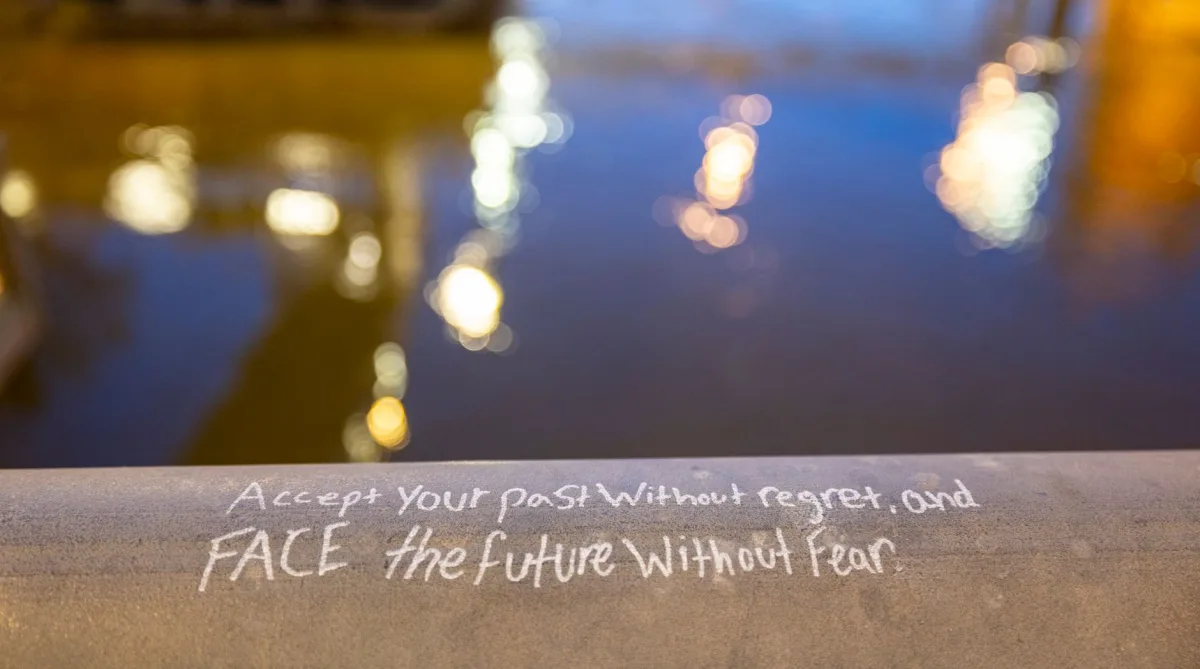 Accept Your past Without regret, and
FACE the future Without Fear.